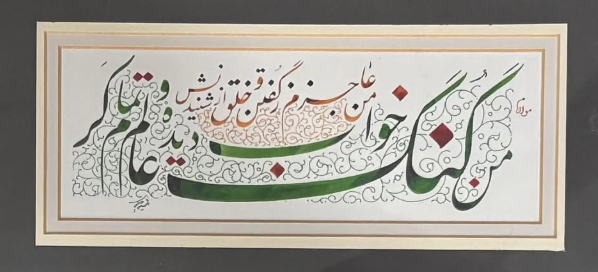 من گنگ خواب دیده و عالم تمام کر
من عاجزم ز گفتن و خلق از شنیدنش
مولانا